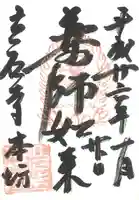 平成廿二年十月
薬師如来
立石寺本坊